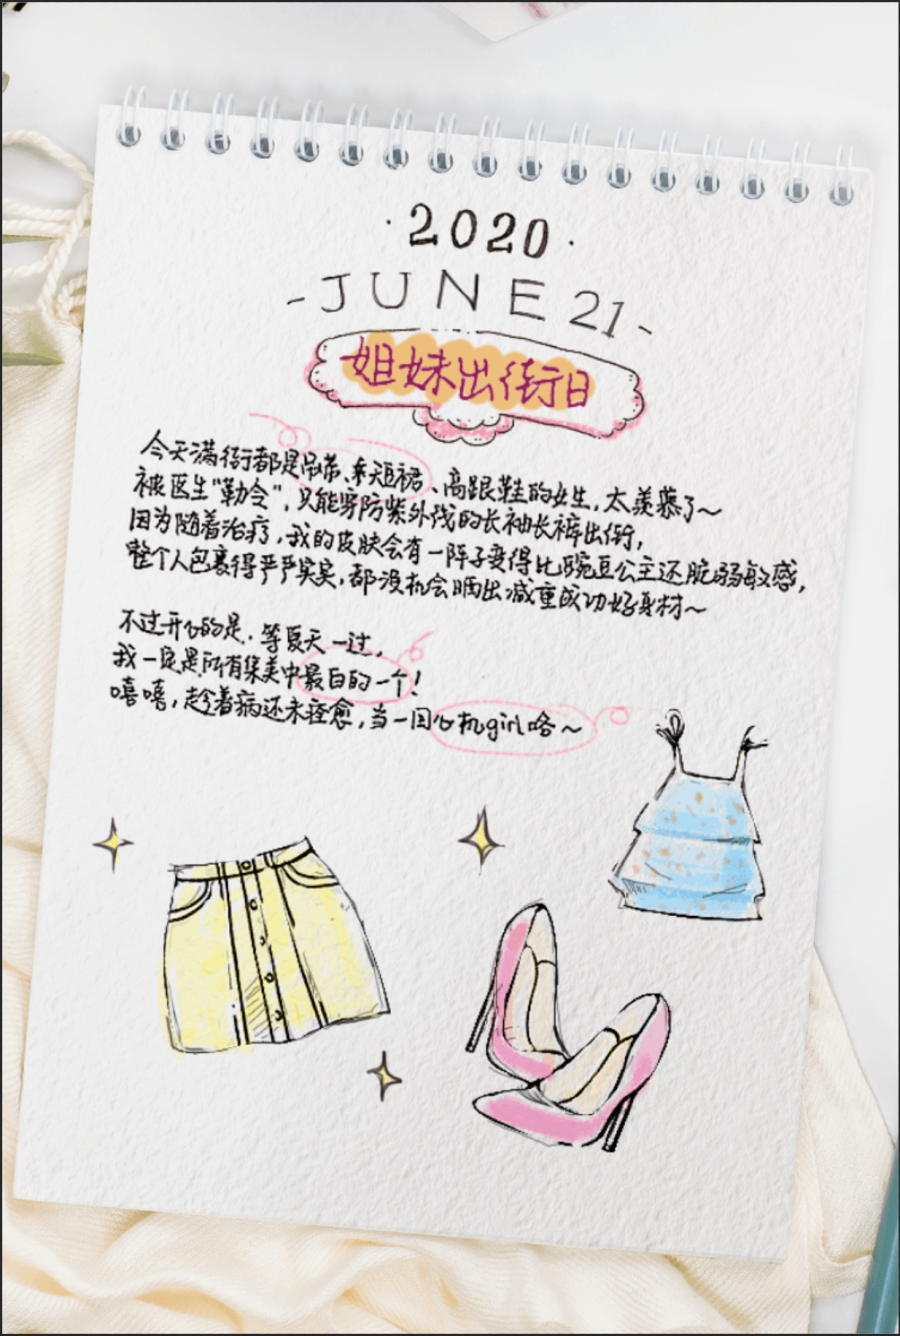 ·2020·
-JUNE 21-
姐妹出街日
今天满街都是吊带、超短裙、高跟鞋的女生，太羡慕了～
被医生“勒令”，只能穿防紫外线的长袖长裤出街，
因为随着治疗，我的皮肤会有一阵子变得比豌豆公主还脆弱敏感，
整个人包裹得严严实实，都没机会晒出减重成功好身材～
不过开心的是，等夏天一过，
我一定是所有集美中最白的一个！
嘻嘻，趁着病还未痊愈，当一回心机girl咯～